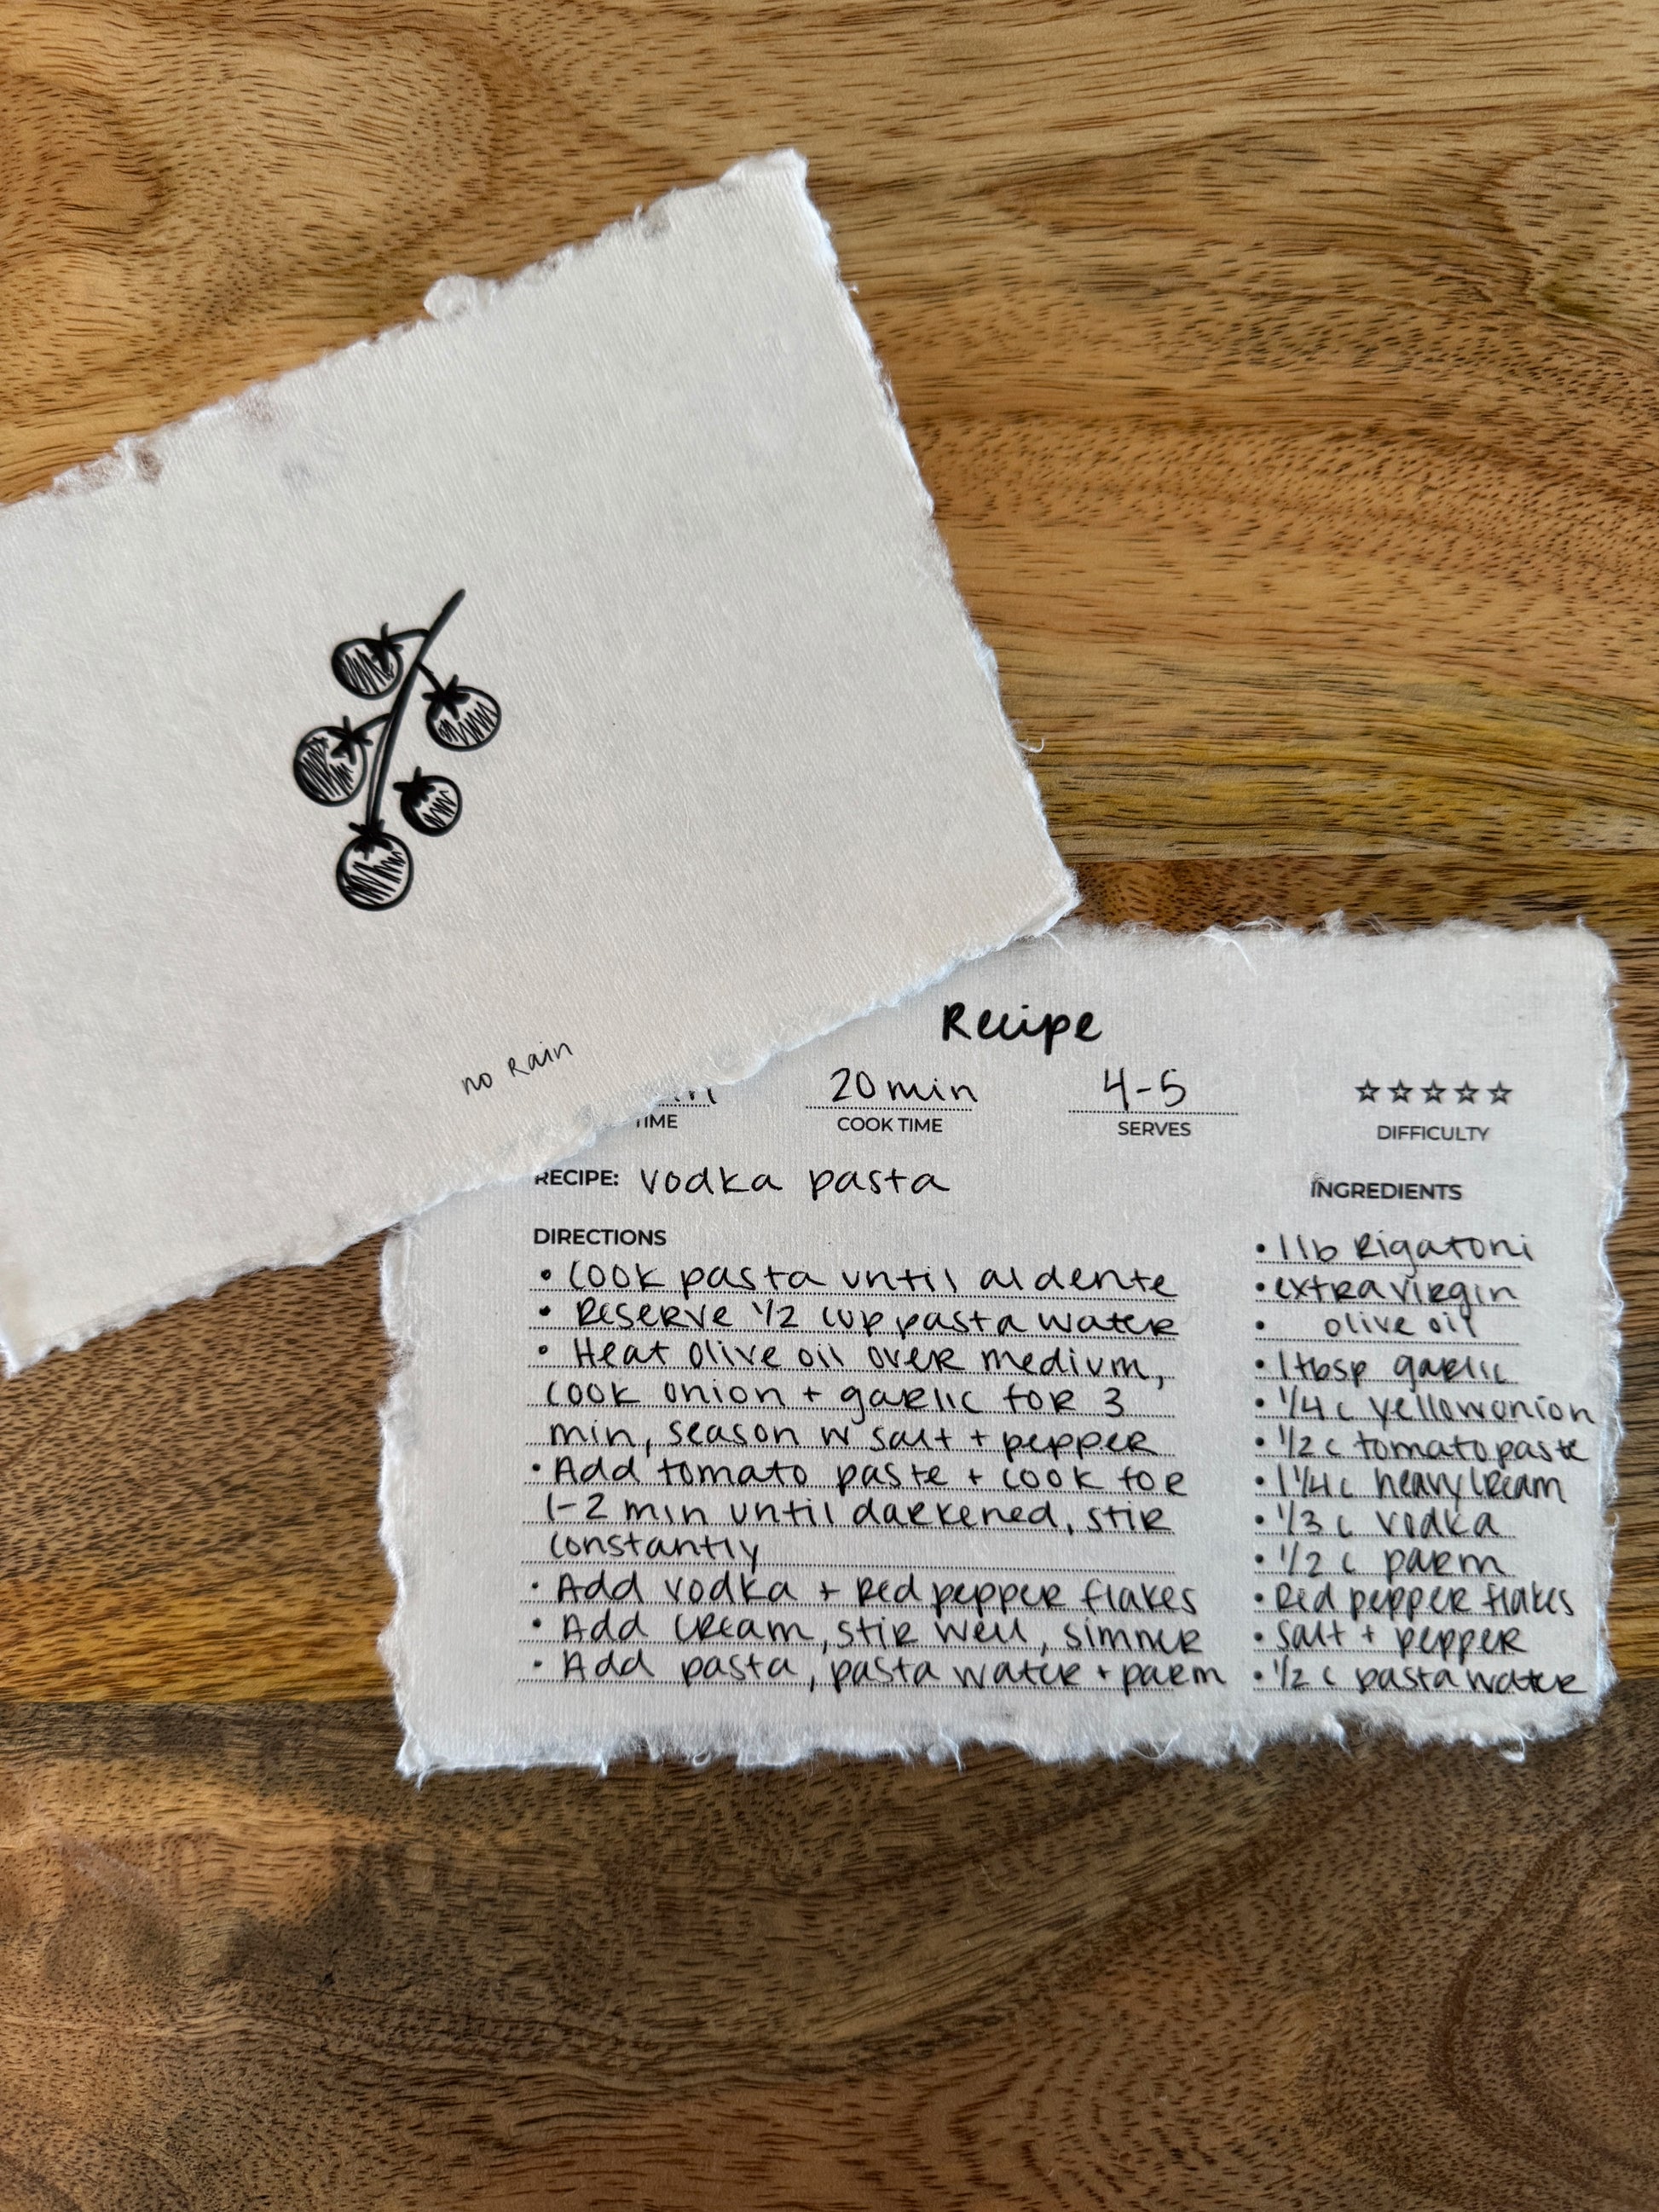 no Rain
Recipe
20 min
4-5
COOK TIME
SERVES
DIFFICULTY
RECIPE: vodka pasta
DIRECTIONS
• Cook pasta until al dente
• Reserve 1/2 cup pasta water
• Heat olive oil over medium,
cook onion + garlic for 3
min, season w salt + pepper
• Add tomato paste + cook for
1-2 min until darkened, stir
constantly
• Add vodka + Red pepper flakes
• Add cream, stir well, simmer
• Add pasta, pasta water + parm
INGREDIENTS
• 1 lb Rigatoni
• extra virgin
• olive oil
• 1 tbsp garlic
• 1/4 c yellow onion
• 1/2 c tomato paste
• 1 1/4 c heavy cream
• 1/3 c vodka
• 1/2 c parm
• Red pepper flakes
• salt + pepper
• 1/2 c pasta water